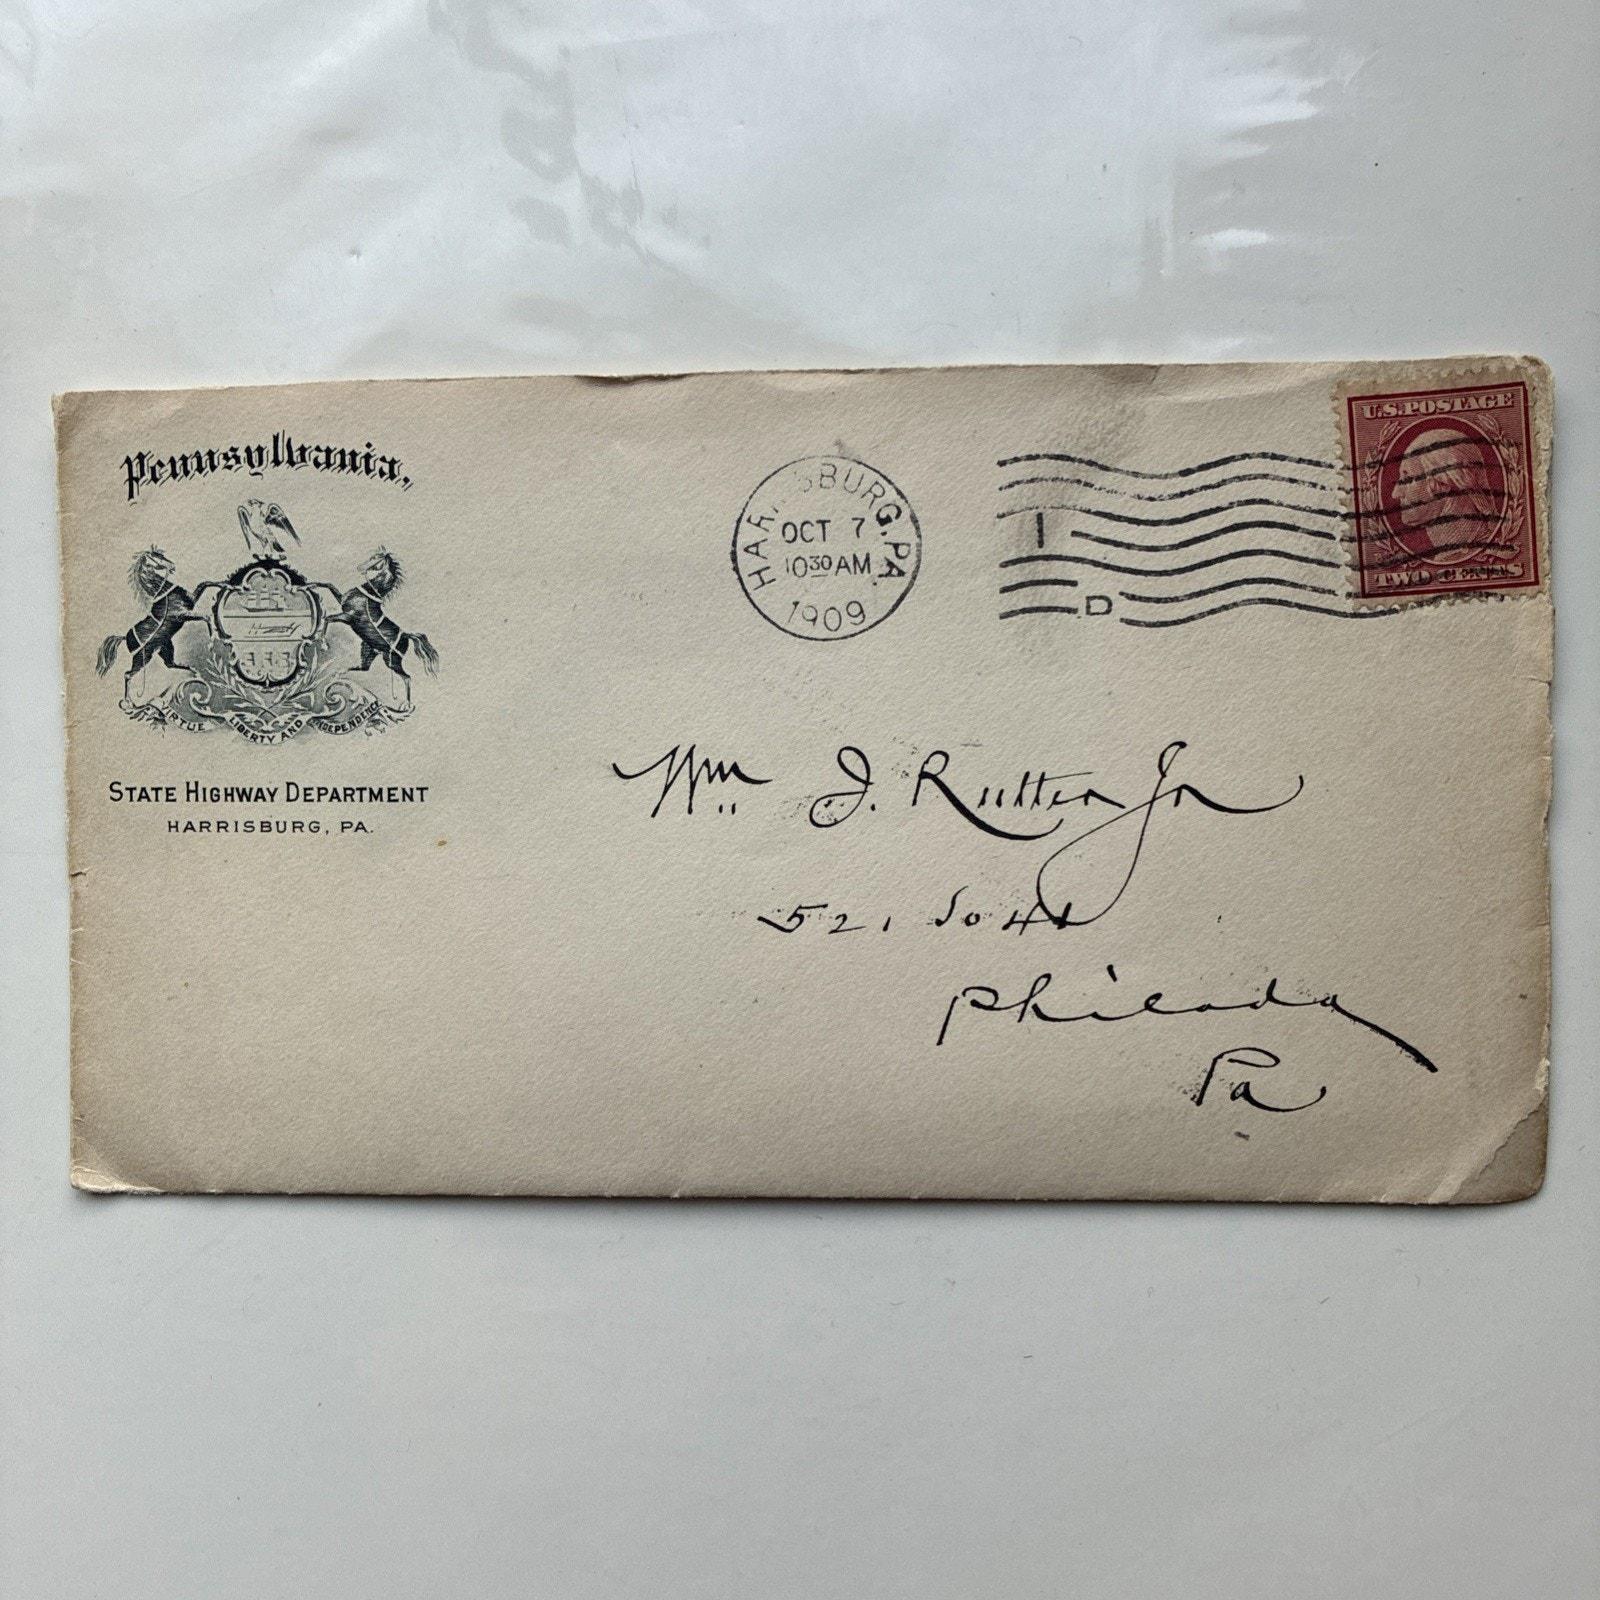 Pennsylvania,
VIRTUE LIBERTY AND INDEPENDENCE
STATE HIGHWAY DEPARTMENT
HARRISBURG, PA.
HARRISBURG, PA.
OCT 7
10 30 AM
1909
1
D
U.S. POSTAGE
TWO CENTS
Wm J. Rutter Jr
521 So 41
Philada
Pa